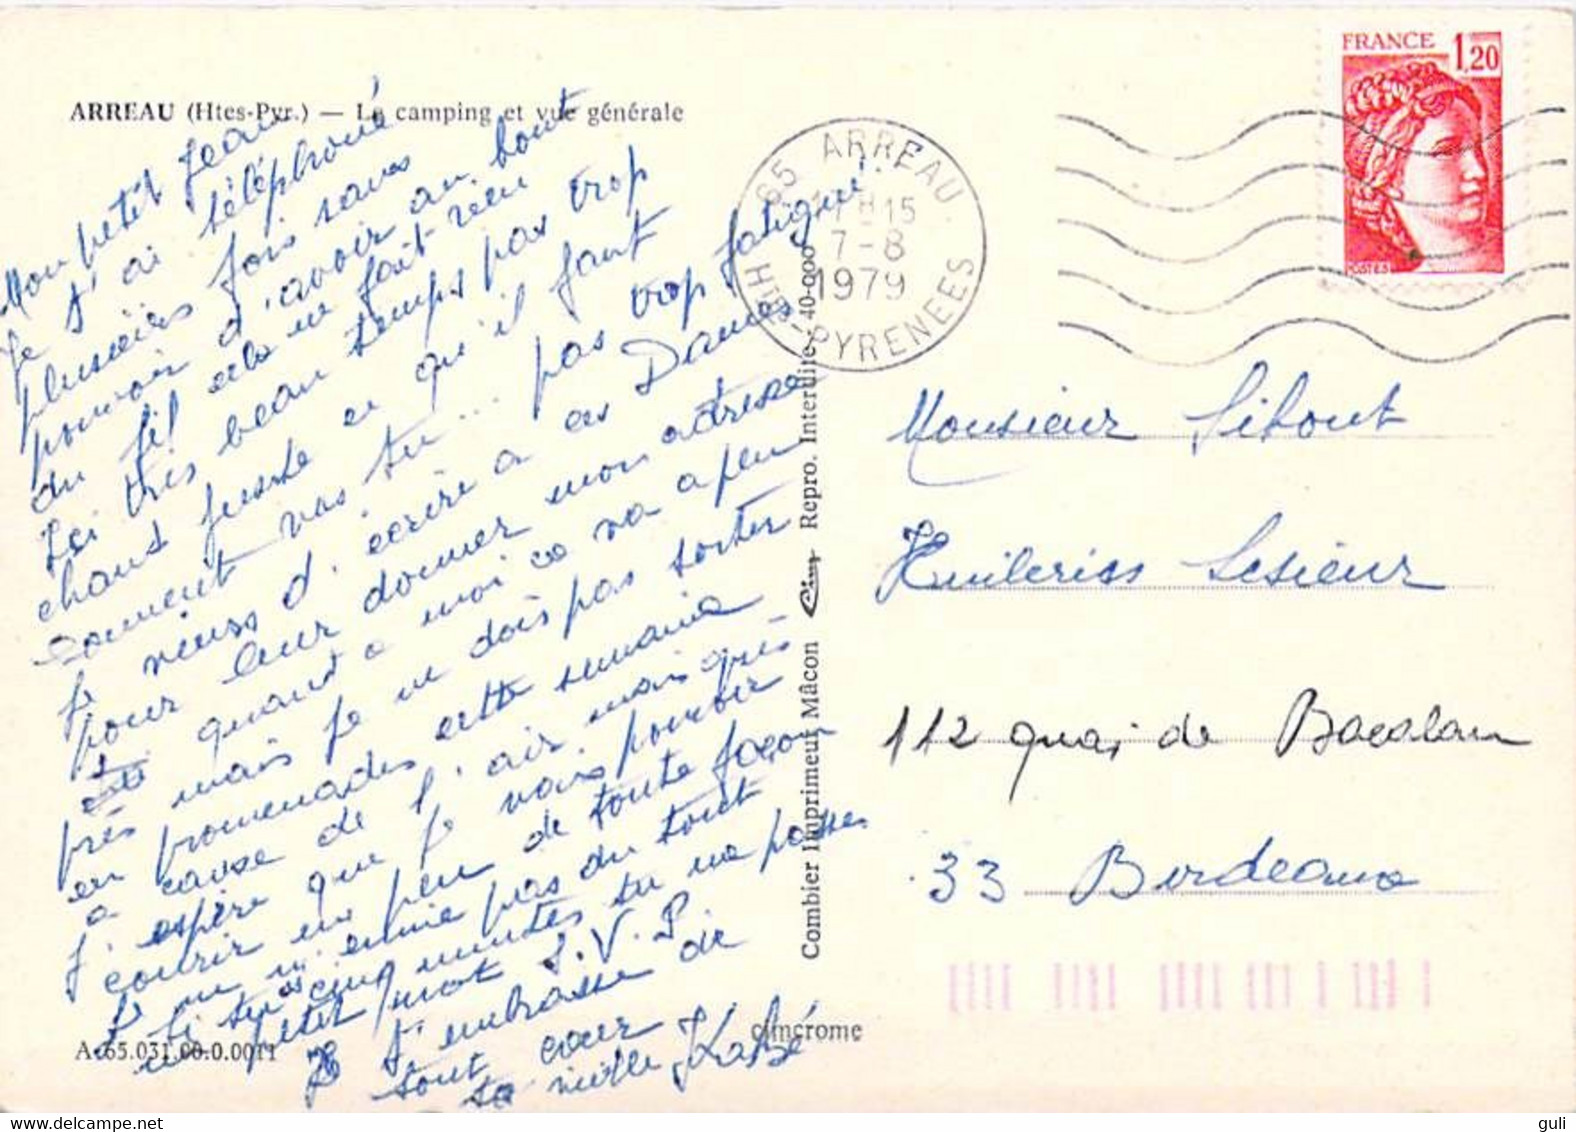 ARREAU (Htes-Pyr.) — Le camping et vue générale
Mon petit Jean
Je t'ai téléphoné
plusieurs fois sans
pouvoir t'avoir au bout
du fil cela ne fait rien
Ici très beau temps pas trop
chaud juste ce qu'il faut
comment vas tu... pas trop fatigué.
Je viens d'écrire a ces Dames
pour leur donner mon adresse
quand a moi ce va a peu
près mais je ne dois pas sortir
en promenades cette semaine
a cause de l'air mais après
J'espère que je vais pouvoir
courir un peu de toute façon
Je ne m'ennuie pas du tout
Si tu as cinq minutes tu me passes
un petit mot S.V.P.
Je t'embrasse de
tout cœur
ta vieille
A. 65.031.00.0.0011
cimcrome
Combier Imprimeur Mâcon Cim Repro. Interdite 40-000
65 ARREAU
HTES-PYRENEES
15
7-8
1979
FRANCE 1,20
POSTES
Monsieur
Huileries Lesieur
112 quai de Bacalan
33 Bordeaux
guli